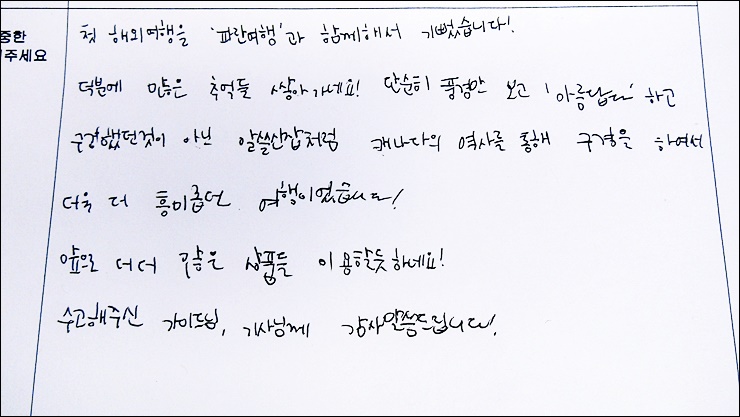 중한
주세요
첫 해외여행을 '파란여행'과 함께해서 기뻤습니다!
덕분에 많은 추억들 쌓아가네요! 단순히 풍경만 보고 '아름답다' 하고
구경했던것이 아닌 알쓸신잡처럼 캐나다의 역사를 통해 구경을 하여서
더욱 더 흥미롭던 여행이었습니다!
앞으로 더더 많은 상품들 이용할듯하네요!
수고해주신 가이드님, 기사님께 감사말씀드립니다!